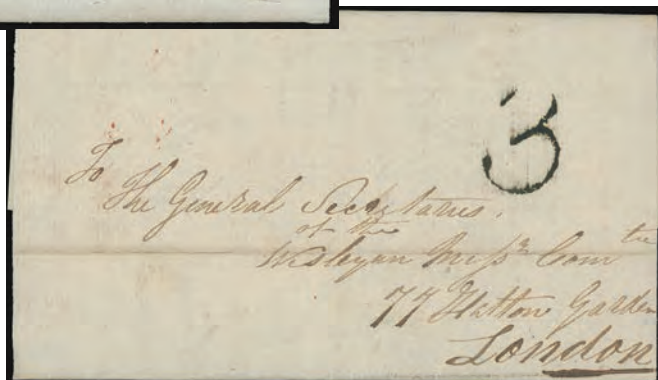 3
To
The General Secretaries.
of the
Wesleyan Miss.n Com.tee
77 Hatton Garden
London